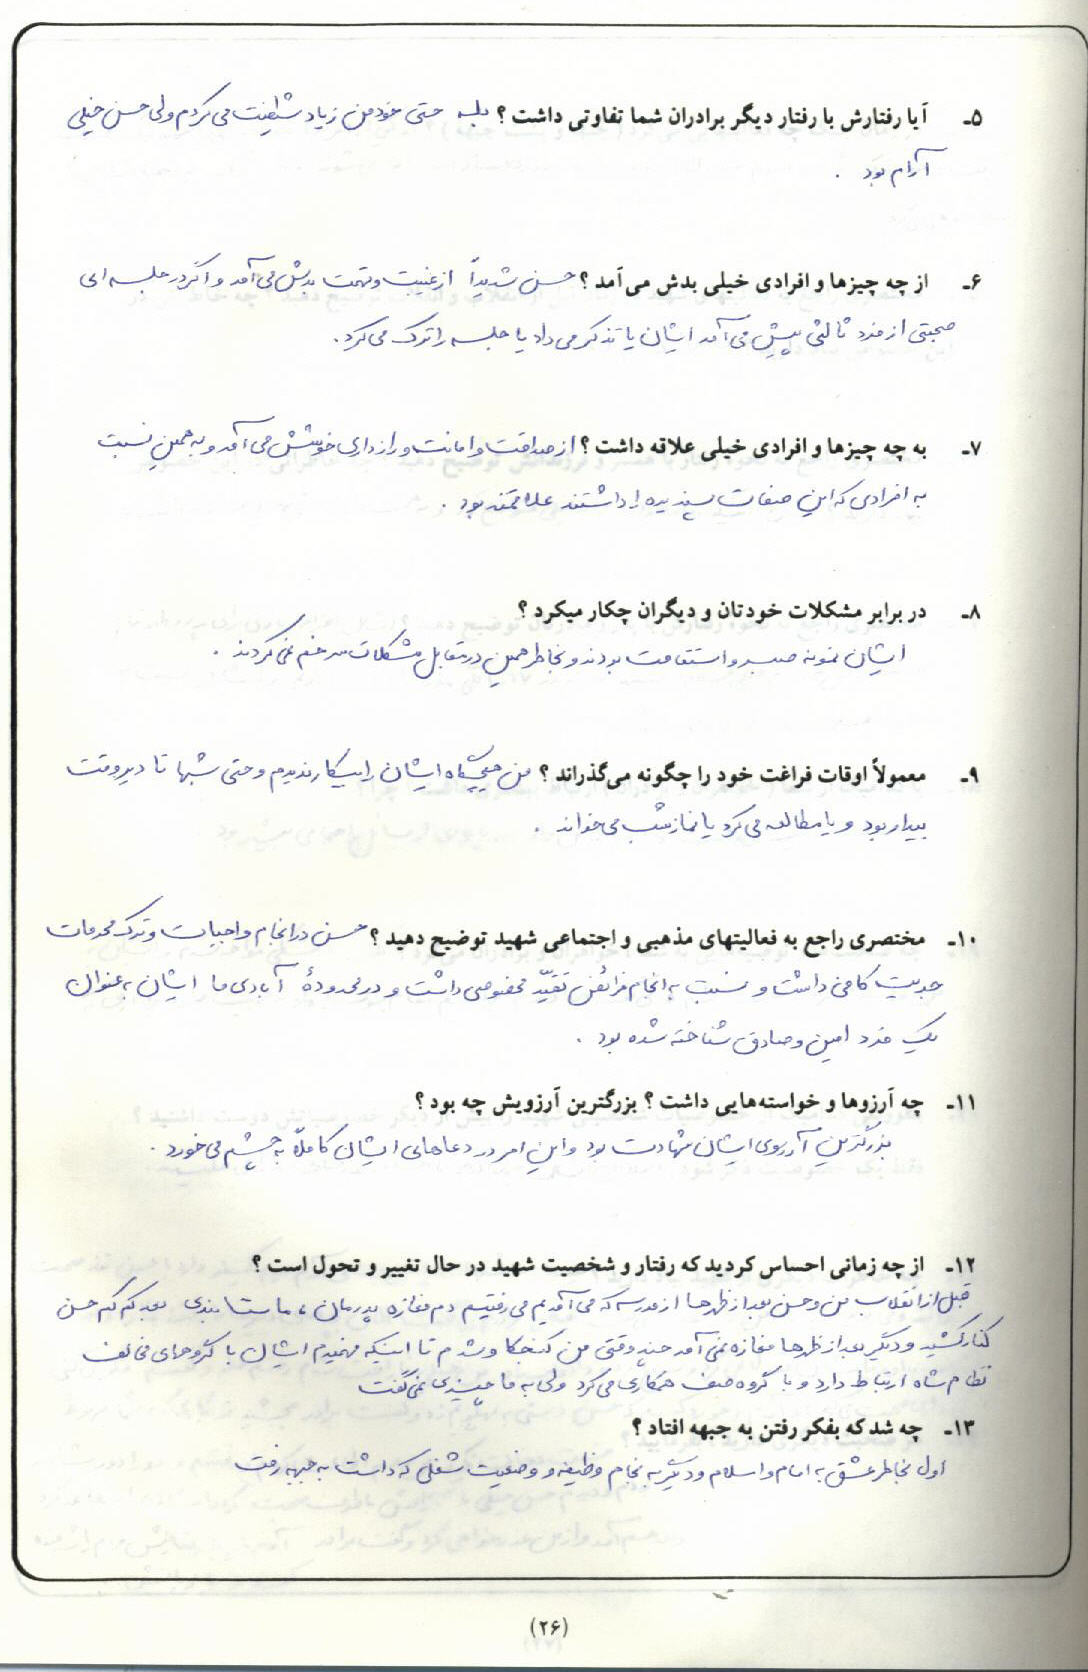 ۵ـ آیا رفتارش با رفتار دیگر برادران شما تفاوتی داشت ؟ بله حتی خود من زیاد شیطنت می کردم ولی حسن خیلی
آرام بود .
۶ـ از چه چیزها و افرادی خیلی بدش می آمد ؟ حسن شدیداً از غیبت و تهمت بدش می آمد و اگر در جلسه ای
صحبتی از فرد ثالثی پیش می آمد ایشان یا تذکر می داد یا جلسه را ترک می کرد .
۷ـ به چه چیزها و افرادی خیلی علاقه داشت ؟ از صداقت و امانت و رازداری خوشش می آمد و به همین نسبت
به افرادی که این صفات پسندیده را داشتند علاقمند بود .
۸ـ در برابر مشکلات خودتان و دیگران چکار میکرد ؟
ایشان نمونه صبر و استقامت بودند و بخاطر همین در مقابل مشکلات سر خم نمی کردند .
۹ـ معمولاً اوقات فراغت خود را چگونه می‌گذراند ؟ من هیچگاه ایشان را بیکار ندیدم و حتی شبها تا دیروقت
بیدار بود و یا مطالعه می کرد یا نماز شب می خواند .
۱۰ـ مختصری راجع به فعالیتهای مذهبی و اجتماعی شهید توضیح دهید ؟ حسن در انجام واجبات و ترک محرمات
جدیت کافی داشت و نسبت به انجام فرائض تقیّد مخصوصی داشت و در محدودهٔ آبادی ما ایشان به عنوان
یک فرد امین و صادق شناخته شده بود .
۱۱ـ چه آرزوها و خواسته‌هایی داشت ؟ بزرگترین آرزویش چه بود ؟
بزرگترین آرزوی ایشان شهادت بود و این امر در دعاهای ایشان کاملاً به چشم می خورد .
۱۲ـ از چه زمانی احساس کردید که رفتار و شخصیت شهید در حال تغییر و تحول است ؟
قبل از انقلاب من و حسن بعد از ظهرها از مدرسه که می آمدیم می رفتیم دم مغازه پدرمان ، ماست بندی بعد کم کم حسن
کنار کشید و دیگر بعد از ظهرها مغازه نمی آمد چند وقتی من کنجکاو شدم تا اینکه فهمیدم ایشان با گروههای مخالف
نظام شاه ارتباط دارد و با گروه صف همکاری می کرد ولی به ما چیزی نمی گفت
۱۳ـ چه شد که بفکر رفتن به جبهه افتاد ؟
اول بخاطر عشق به امام و اسلام و دیگر به انجام وظیفه و وضعیت شغلی که داشت به جبهه رفت
(۲۶)